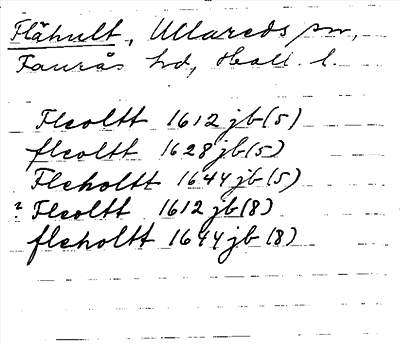 Flähult, Ullareds sn,
Faurås hd, Hall. l.
Fleoltt 1612 jb(5)
fleoltt 1628 jb(5)
Fleholtt 1644 jb(5)
? Fleoltt 1612 jb(8)
fleholtt 1644 jb(8)